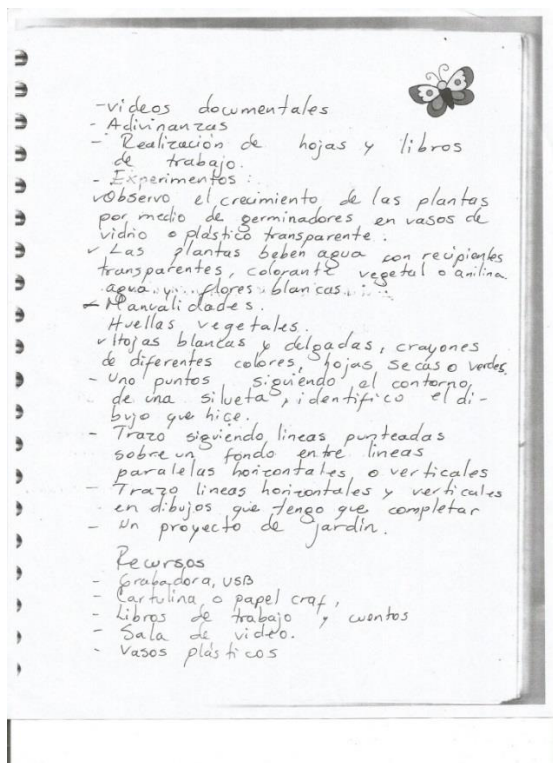 -videos documentales
- Adivinanzas
- Realización de hojas y libros
de trabajo.
- Experimentos :
✓Observo el crecimiento de las plantas
por medio de germinadores en vasos de
vidrio o plástico transparente.
✓ Las plantas beben agua con recipientes
transparentes, colorante vegetal o anilina
agua y flores blancas
- Manualidades.
Huellas vegetales.
✓ Hojas blancas y delgadas, crayones
de diferentes colores, hojas secas o verdes.
- Uno puntos siguiendo el contorno
de una silueta, identifico el di-
bujo que hice.
- Trazo siguiendo lineas punteadas
sobre un fondo entre lineas
paralelas horizontales o verticales
- Trazo lineas horizontales y verticales
en dibujos que tengo que completar
- Un proyecto de jardín.
Recursos
- Grabadora, USB
- Cartulina o papel craf,
- Libros de trabajo y cuentos
- Sala de video.
- Vasos plásticos